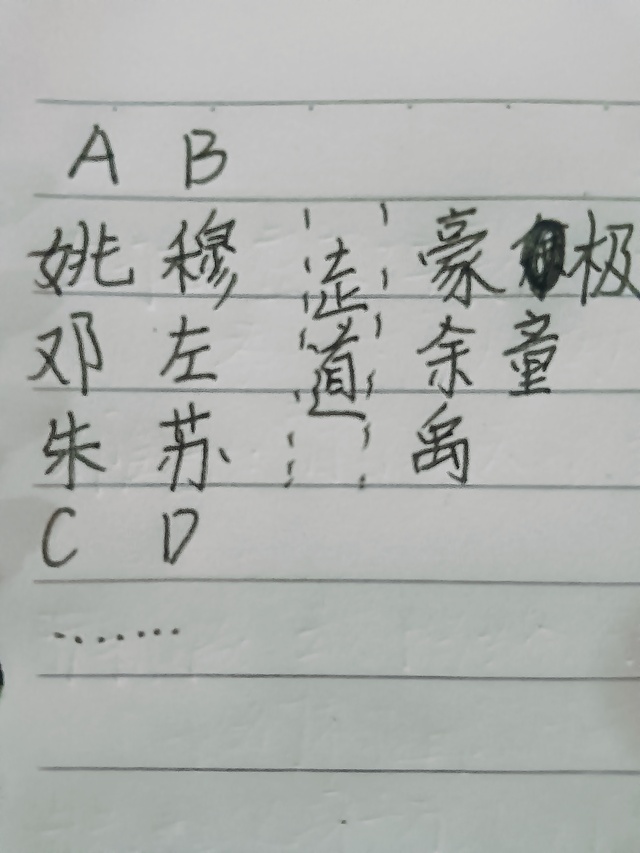 A B
姚 穆 走 豪 极
邓 左 道 余 童
朱 苏 禹
C D
.......